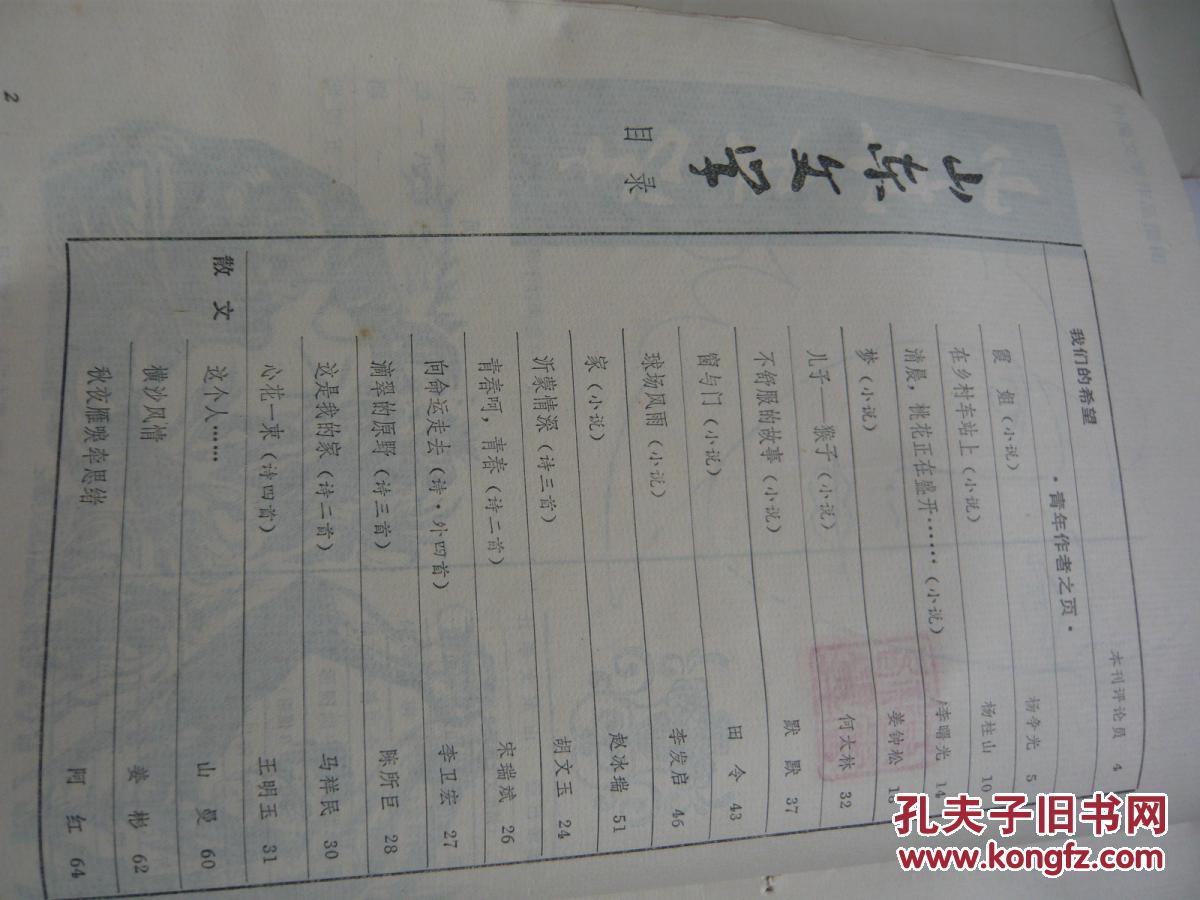 山东文学
目录
我们的希望 本刊评论员 4
·青年作者之页·
霞 姐(小说) 杨争光 5
在乡村车站上(小说) 杨柱山 10
清晨，桃花正在盛开……(小说) 李曙光 14
梦(小说) 姜钟松 18
儿子——猴子(小说) 何大林 32
不舒服的故事(小说) 默 默 37
窗与门(小说) 田 令 43
球场风雨(小说) 李发启 46
家(小说) 赵冰瑞 51
沂蒙情深(诗三首) 胡文玉 24
青春呵，青春(诗二首) 宋瑞斌 26
向命运走去(诗·外四首) 李卫宏 27
滴翠的原野(诗三首) 陈所巨 28
这是我的家(诗二首) 马祥民 30
心花一束(诗四首) 王明玉 31
散 文
这个人…… 山 曼 60
横沙风情 姜 彬 62
秋夜雁唳牵思绪 阿 红 64
2
孔夫子旧书网
www.kongfz.com